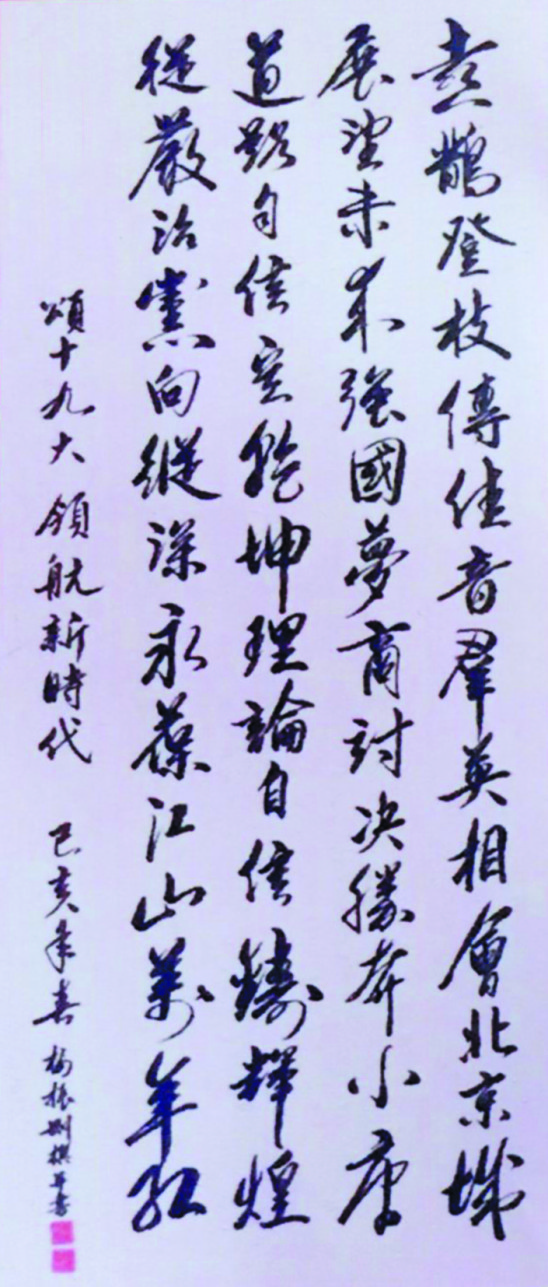 喜鵲登枝傳佳音羣英相會北京城
展望未來強國夢商討決勝奔小康
道路自信定乾坤理論自信鑄輝煌
從嚴治黨向縱深永葆江山萬年紅
頌十九大領航新時代 己亥年春 楊振剛撰並書